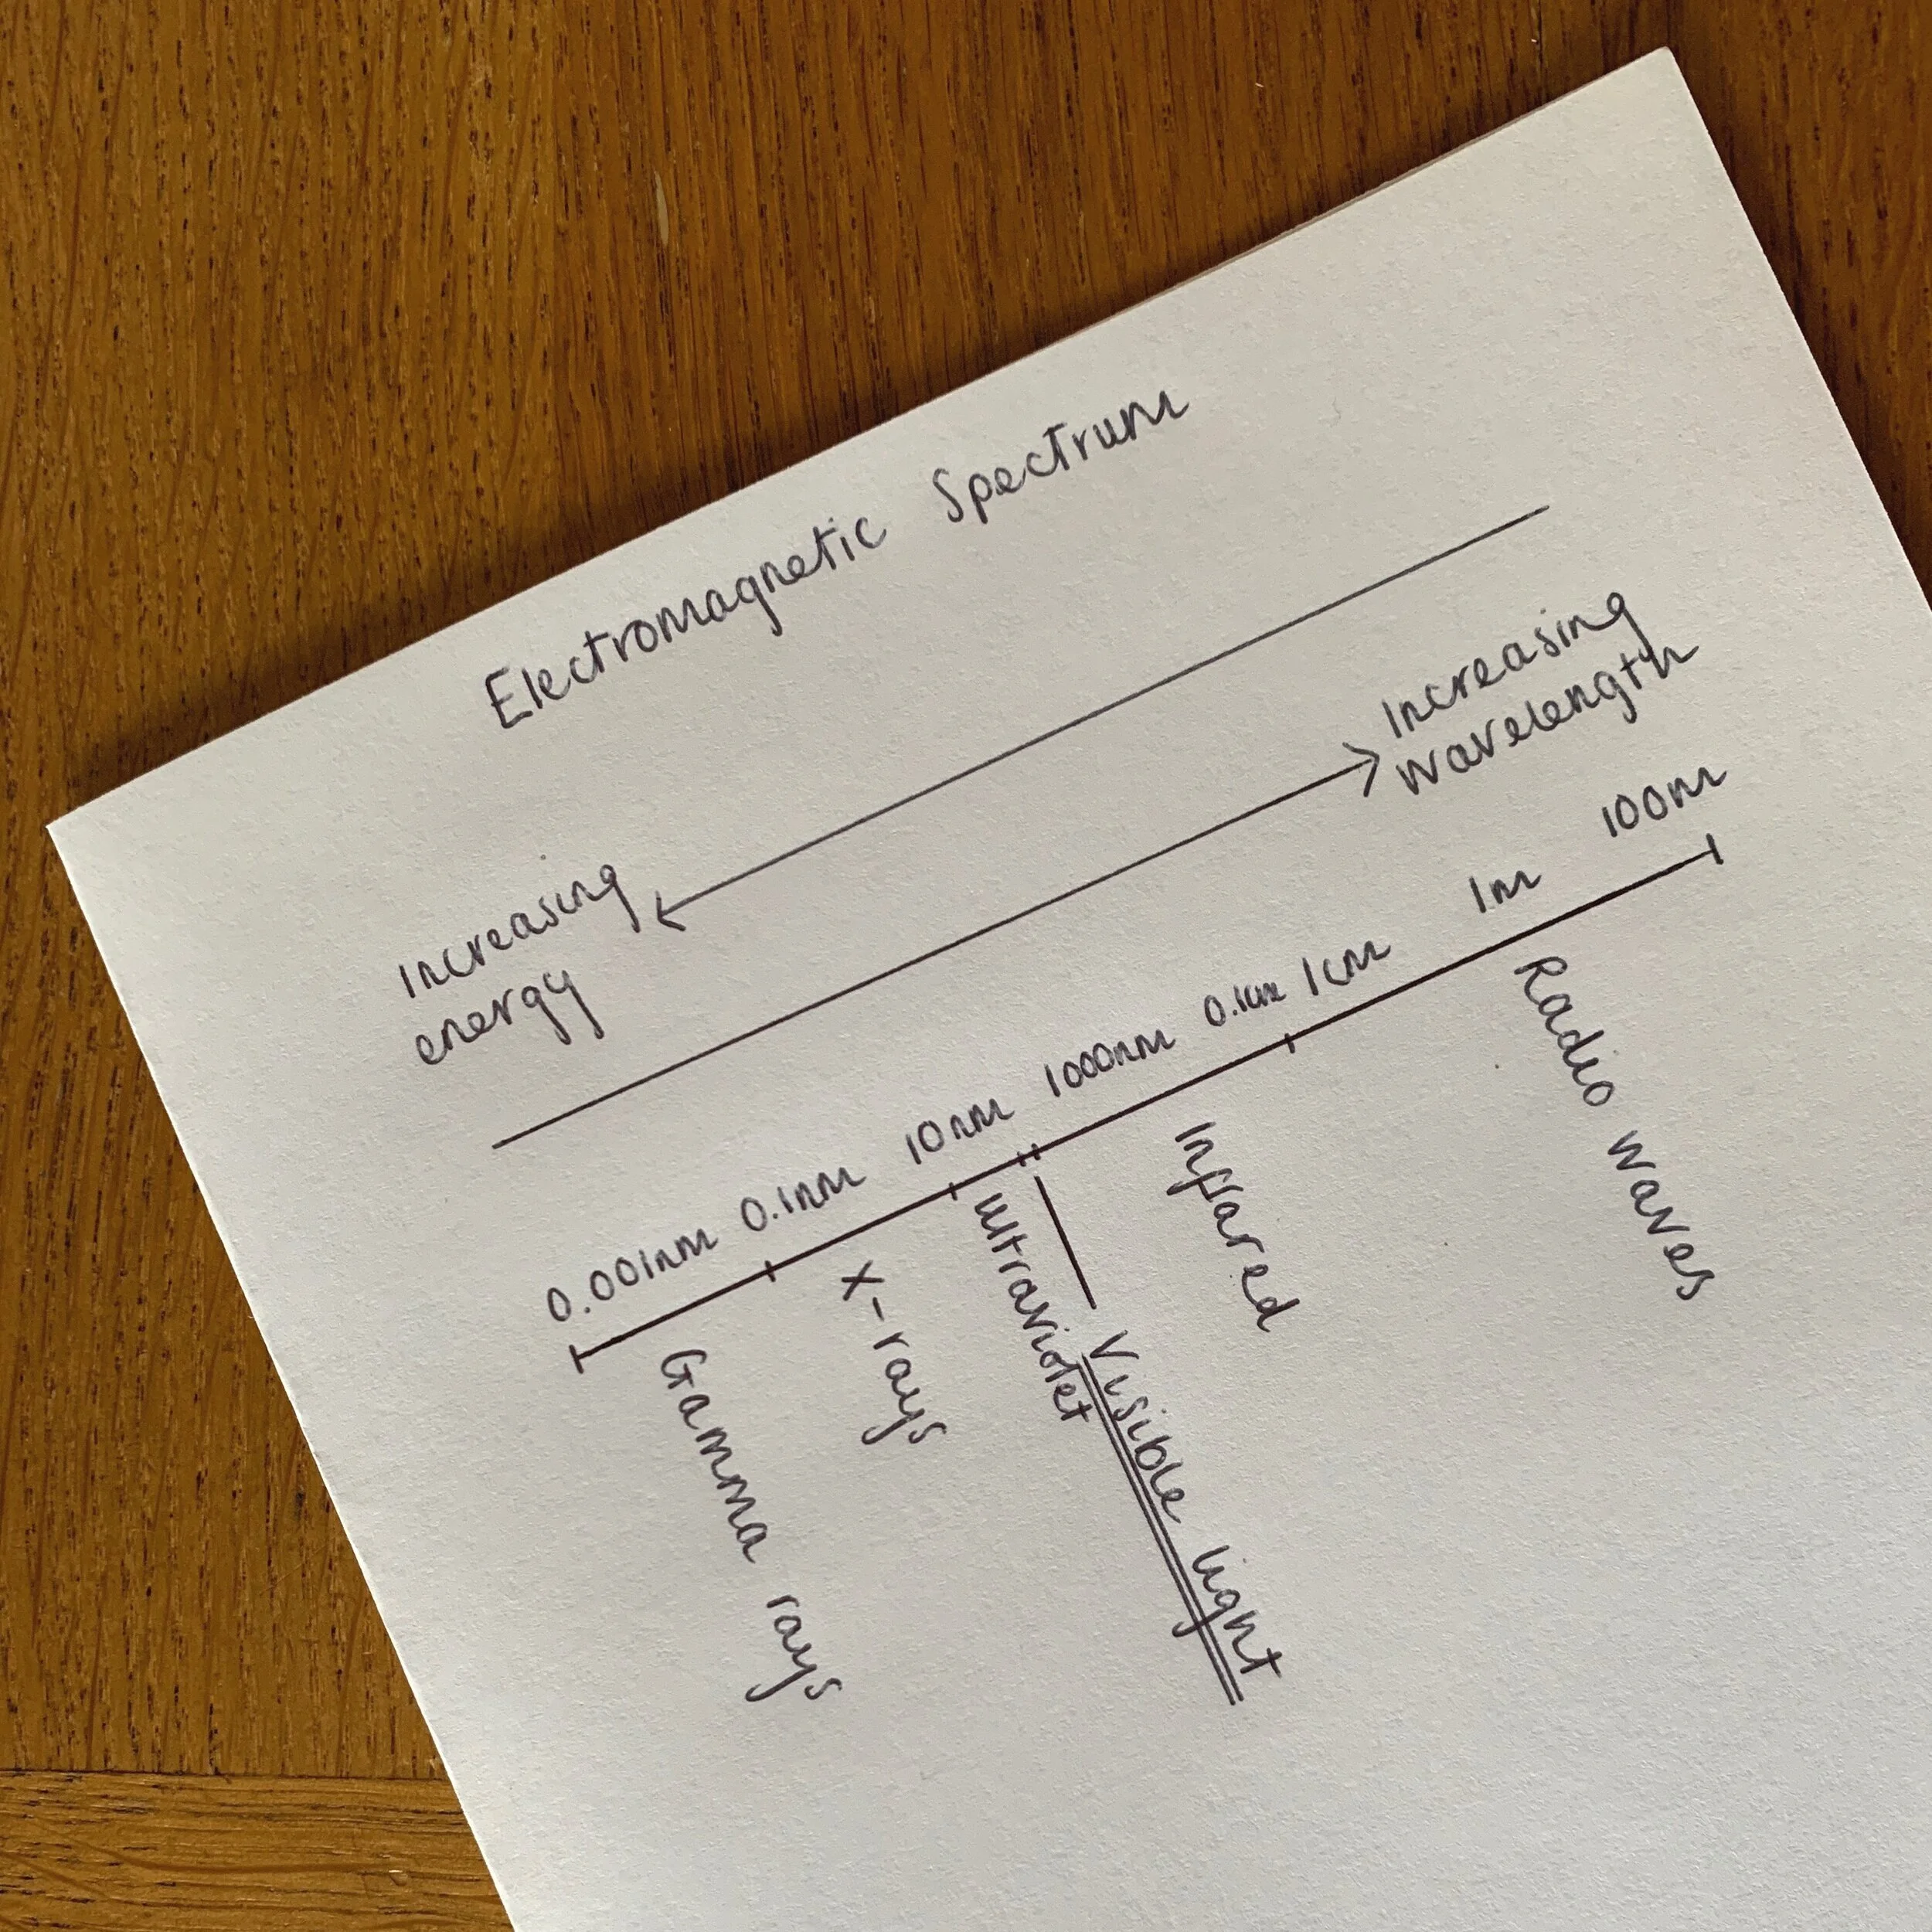 Electromagnetic Spectrum
Increasing
energy
Increasing
wavelength
0.001nm 0.1nm 10nm 1000nm 0.1cm 1cm 1m 100m
Gamma rays
X-rays
Ultraviolet
Visible light
Infrared
Radio waves